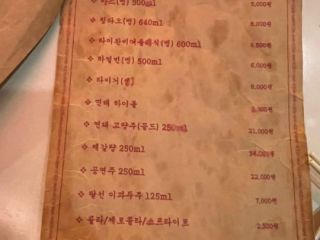 ❖ 칭타오(병) 640ml 8,000원
❖ 타이완비어클래식(병) 600ml 8,500원
❖ 하얼빈(병) 500ml 6,000원
❖ 타이거(병) 8,000원
❖ 연태 하이볼
❖ 연태 고량주(골드) 250ml 21,000원
❖ 제갈량 250ml 34,000원
❖ 공면주 250ml 22,000원
❖ 팔선 이과두주 125ml 7,000원
❖ 콜라/제로콜라/스프라이트 2,500원